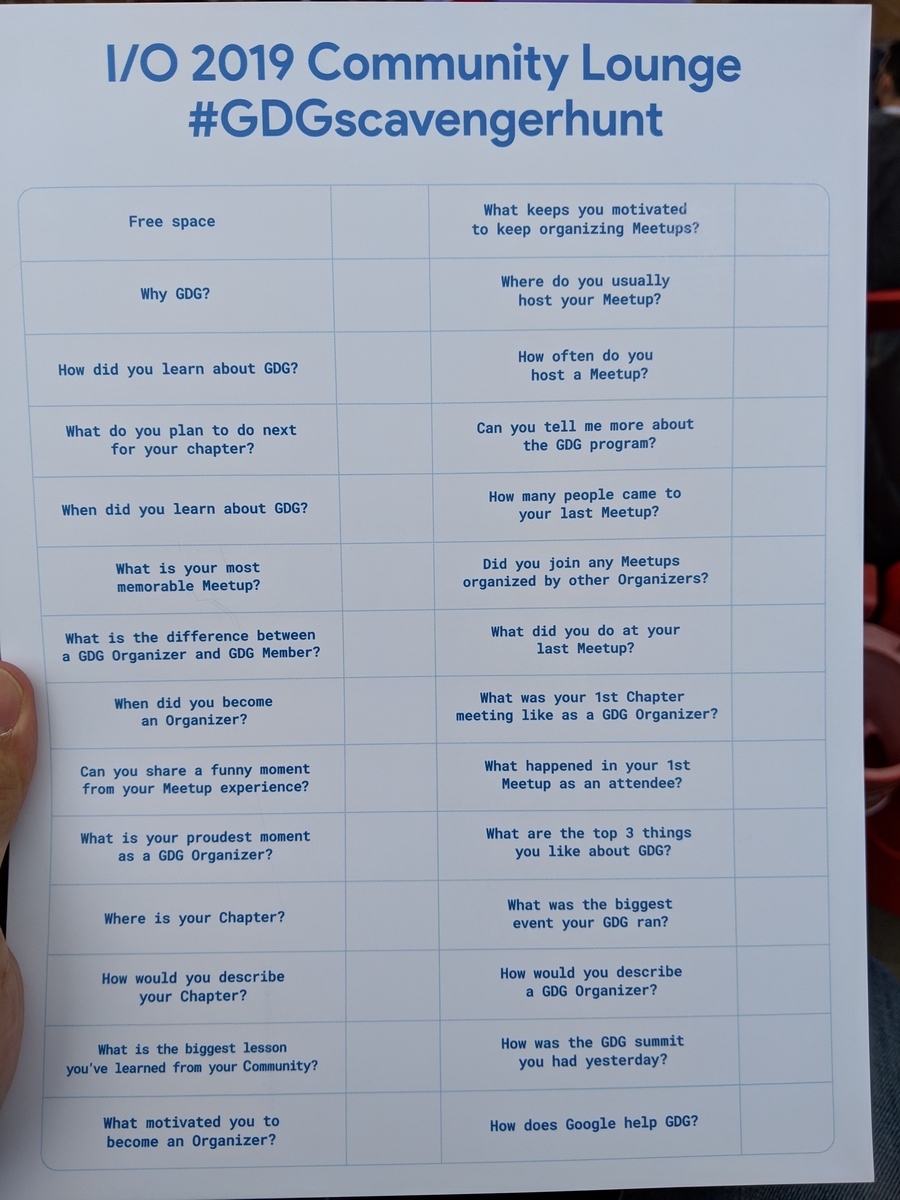 I/O 2019 Community Lounge
#GDGscavengerhunt
Free space
What keeps you motivated
to keep organizing Meetups?
Why GDG?
Where do you usually
host your Meetup?
How did you learn about GDG?
How often do you
host a Meetup?
What do you plan to do next
for your chapter?
Can you tell me more about
the GDG program?
When did you learn about GDG?
How many people came to
your last Meetup?
What is your most
memorable Meetup?
Did you join any Meetups
organized by other Organizers?
What is the difference between
a GDG Organizer and GDG Member?
What did you do at your
last Meetup?
When did you become
an Organizer?
What was your 1st Chapter
meeting like as a GDG Organizer?
Can you share a funny moment
from your Meetup experience?
What happened in your 1st
Meetup as an attendee?
What is your proudest moment
as a GDG Organizer?
What are the top 3 things
you like about GDG?
Where is your Chapter?
What was the biggest
event your GDG ran?
How would you describe
your Chapter?
How would you describe
a GDG Organizer?
What is the biggest lesson
you've learned from your Community?
How was the GDG summit
you had yesterday?
What motivated you to
become an Organizer?
How does Google help GDG?